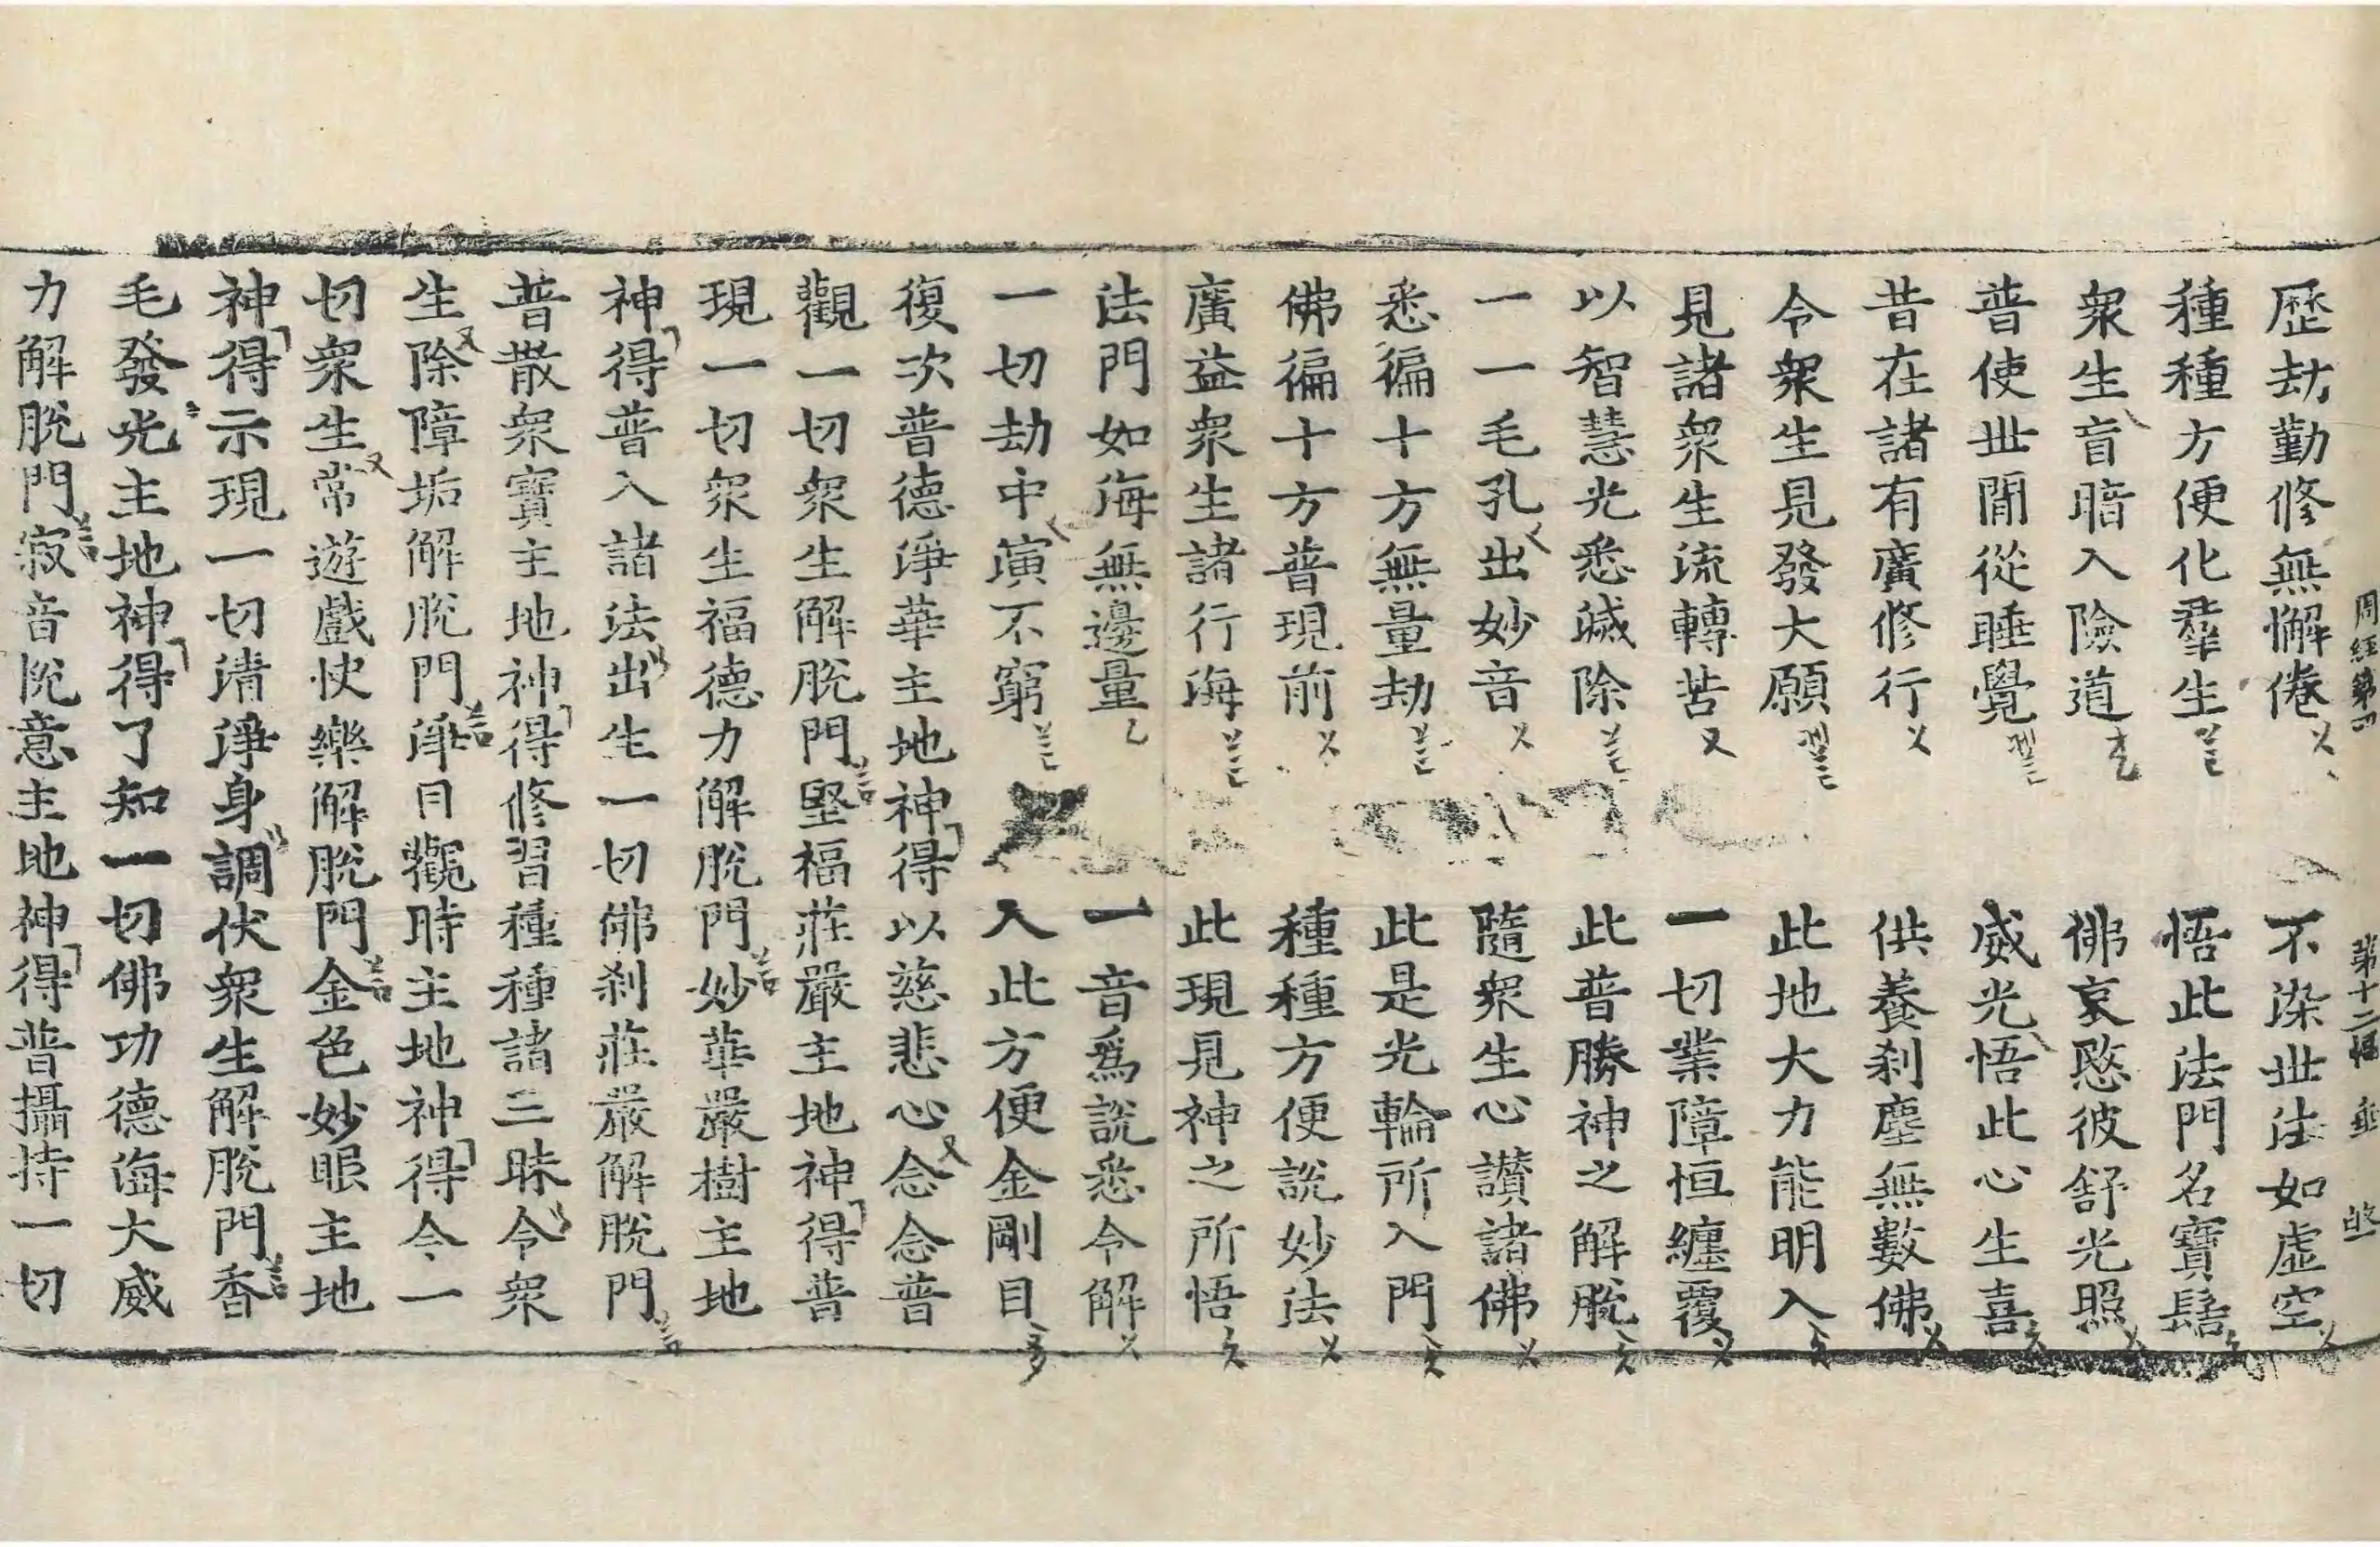 周經第四 第十二幅
歷劫勤修無懈倦 不染世法如虛空
種種方便化羣生 悟此法門名寶髻
衆生盲暗入險道 佛哀愍彼舒光照
普使世間從睡覺 威光悟此心生喜
昔在諸有廣修行 供養刹塵無數佛
令衆生見發大願 此地大力能明入
見諸衆生流轉苦 一切業障恒纏覆
以智慧光悉滅除 此普勝神之解脫
一一毛孔出妙音 隨衆生心讃諸佛
悉徧十方無量劫 此是光輪所入門
佛徧十方普現前 種種方便說妙法
廣益衆生諸行海 此現見神之所悟
法門如海無邊量 一音爲說悉令解
一切劫中演不窮 入此方便金剛目
復次普德淨華主地神得以慈悲心念念普
觀一切衆生解脫門堅福莊嚴主地神得普
現一切衆生福德力解脫門妙華嚴樹主地
神得普入諸法出生一切佛刹莊嚴解脫門
普散衆寶主地神得修習種種諸三昧令衆
生除障垢解脫門淨目觀時主地神得令一
切衆生常遊戲快樂解脫門金色妙眼主地
神得示現一切清淨身調伏衆生解脫門香
毛發光主地神得了知一切佛功德海大威
力解脫門寂音悅意主地神得普攝持一切